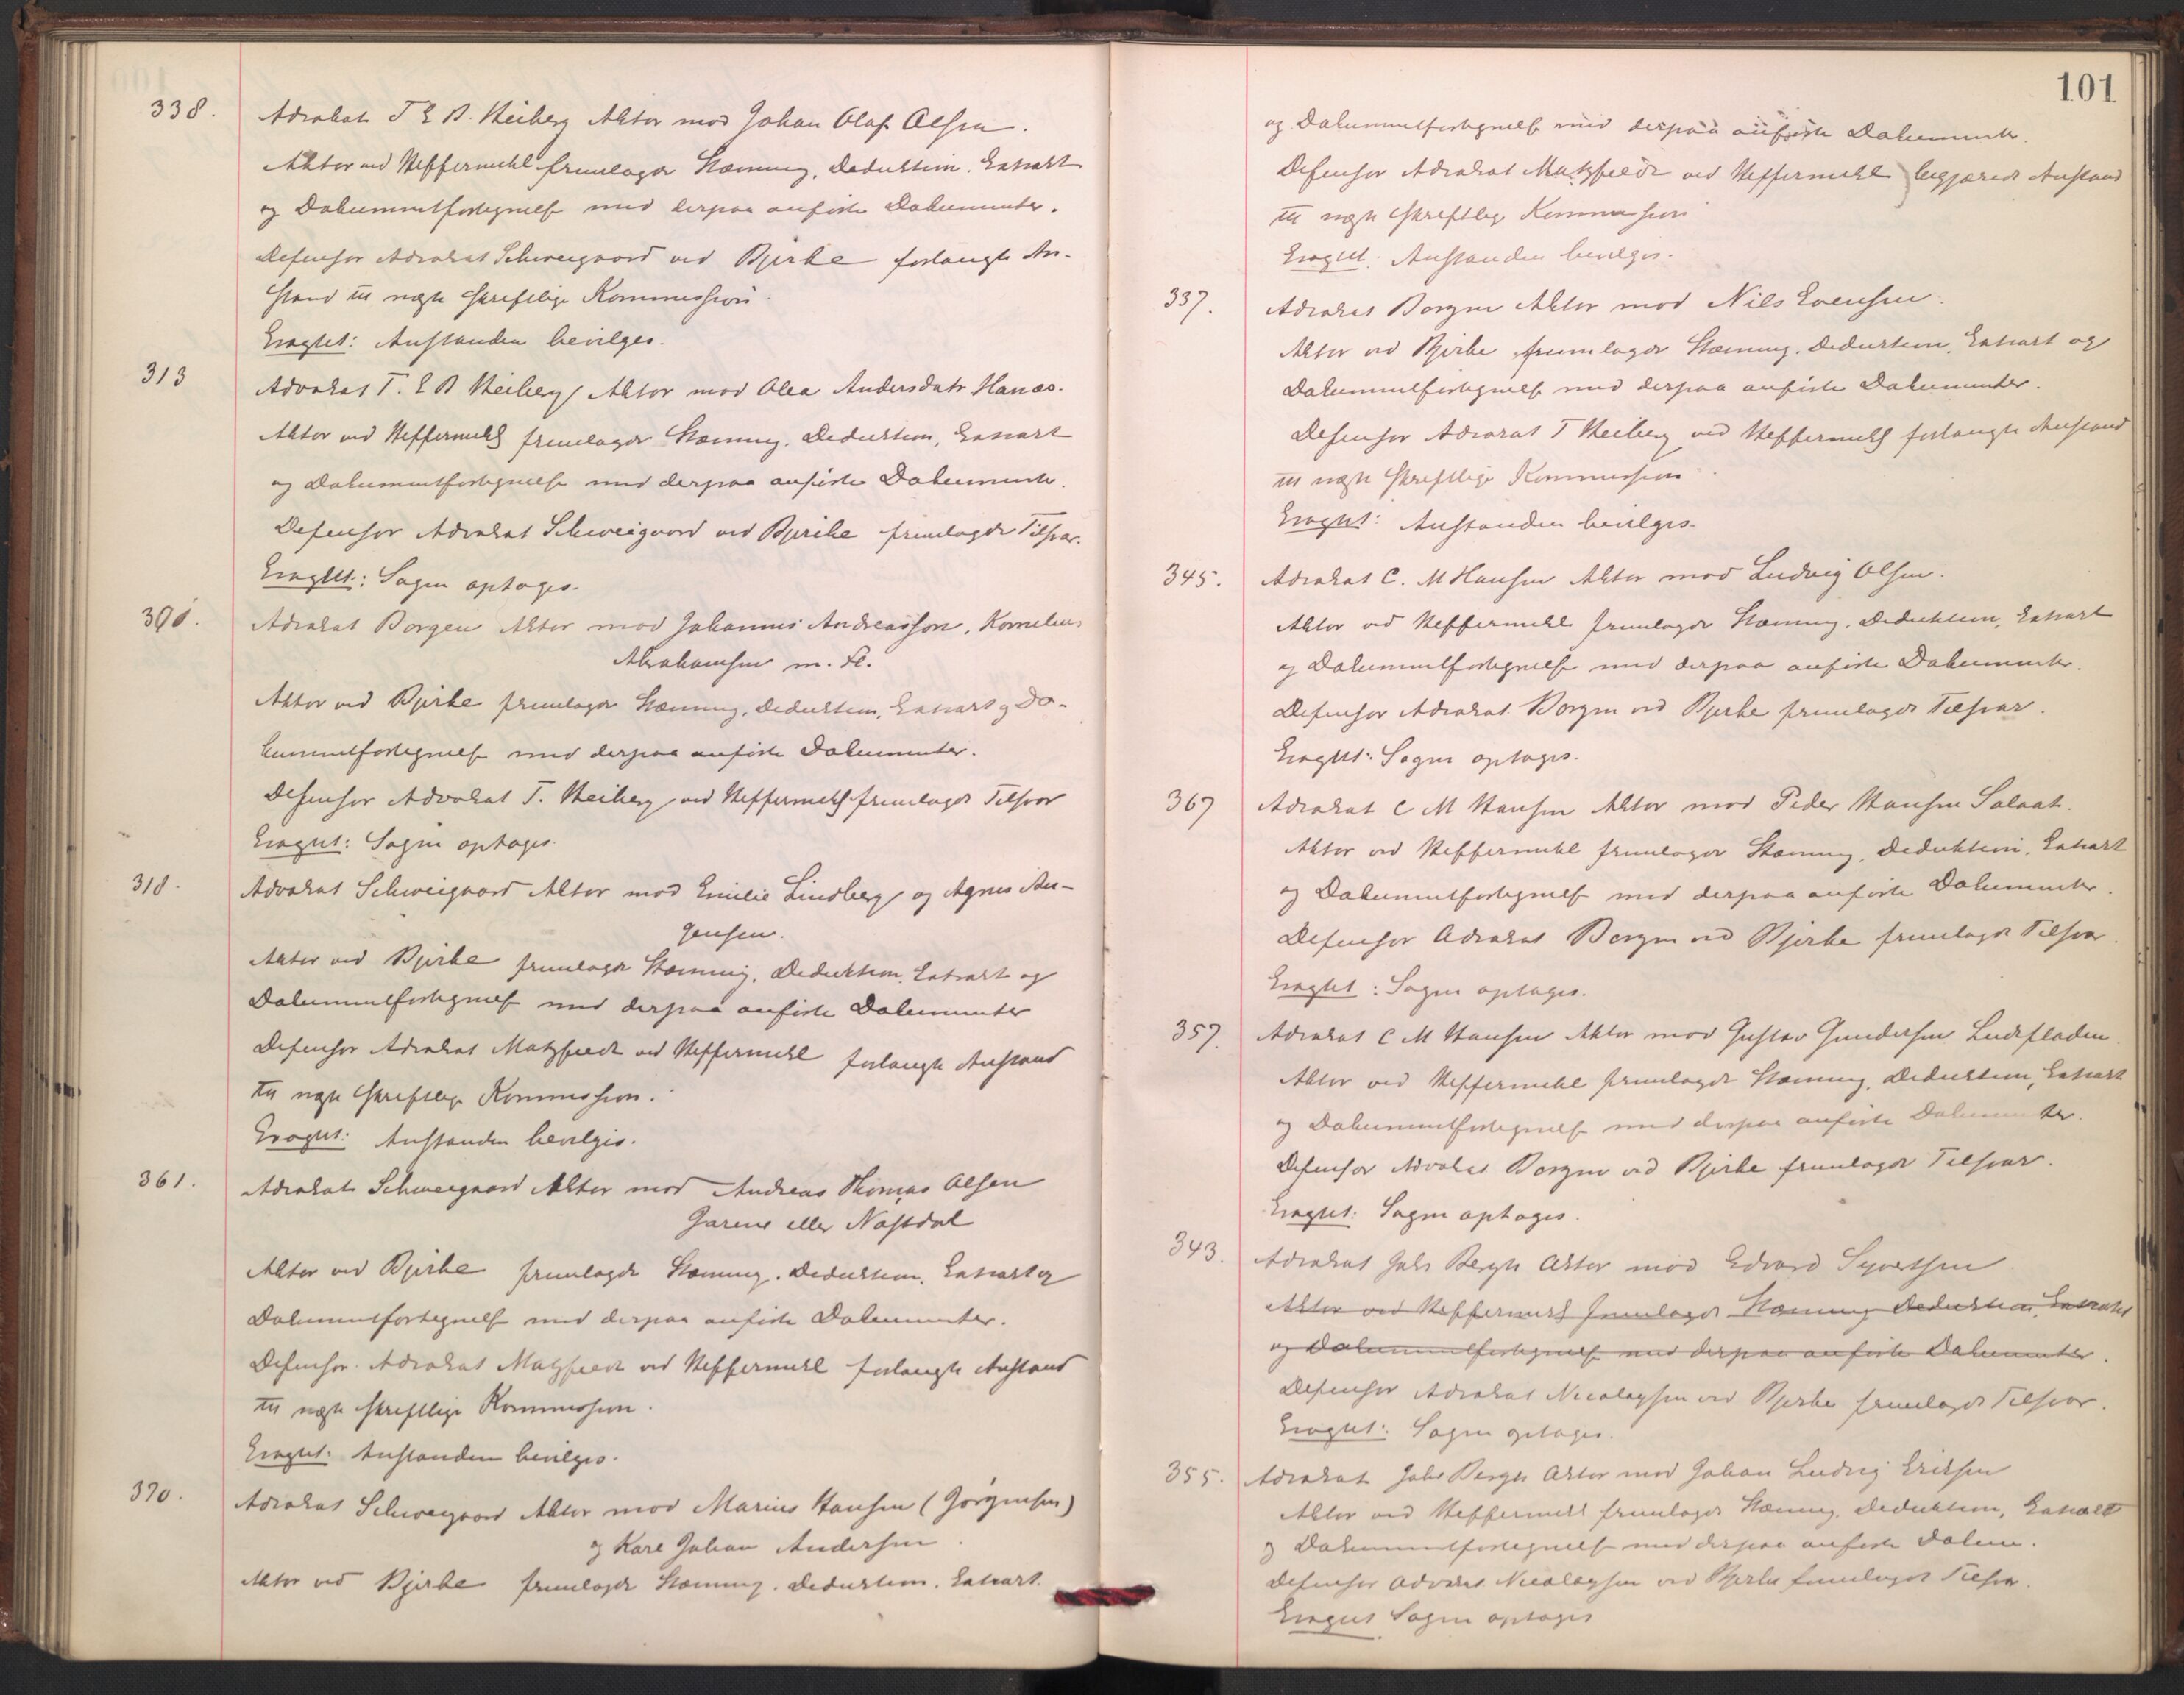 338. Advokat T E B. Heiberg Aktor mod Johan Olaf Olsen.
Aktor ved Heffermehl fremlagde Stævning, Deduktion, Extrakt
og Dokumentfortegnelse med derpaa anførte Dokumenter.
Defensor Advokat Schweigaard ved Bjerke forlangte An-
stand til næste skriftlige Kommission.
Eragtet: Anstanden bevilges.
313 Advokat T. E B Heiberg Aktor mod Olea Andersdatr Hanæs.
Aktor ved Heffermehl fremlagde Stævning, Deduktion, Extrakt
og Dokumentfortegnelse med derpaa anførte Dokumenter.
Defensor Advokat Schweigaard ved Bjerke fremlagde Tilsvar.
Eragtet: Sagen optages.
Advokat Borgen Aktor mod Johannes Andreassen, Kornelius
Abrahamsen m. Fl.
Aktor ved Bjerke fremlagde Stævning, Deduktion, Extrakt og Do-
kumentfortegnelse med derpaa anførte Dokumenter.
Defensor Advokat T. Heiberg ved Heffermehl fremlagde Tilsvar
Eragtet: Sagen optages.
318. Advokat Schweigaard Aktor mod Emilie Lindberg og Agnes An-
gensen.
Aktor ved Bjerke fremlagde Stævning, Deduktion, Extrakt og
Dokumentfortegnelse med derpaa anførte Dokumenter
Defensor Advokat Matzfeldt ved Heffermehl forlangte Anstand
til næste skriftlige Kommission.
Eragtet: Anstanden bevilges.
361. Advokat Schweigaard Aktor mod Andreas Thomas Olsen
Garene eller Nastdal
Aktor ved Bjerke fremlagde Stævning, Deduktion, Extrakt og
Dokumentfortegnelse med derpaa anførte Dokumenter.
Defensor Advokat Matzfeldt ved Heffermehl forlangte Anstand
til næste skriftlige Kommission.
Eragtet: Anstanden bevilges.
370. Advokat Schweigaard Aktor mod Marius Hansen (Jørgensen)
og Karl Johan Andersen.
Aktor ved Bjerke fremlagde Stævning, Deduktion, Extrakt
101
og Dokumentfortegnelse med derpaa anførte Dokumenter.
Defensor Advokat Matzfeldt ved Heffermehl begjærede Anstand
til næste skriftlige Kommission
Eragtet: Anstanden bevilges.
337. Advokat Borgen Aktor mod Nils Evensen.
Aktor ved Bjerke fremlagde Stævning, Deduktion, Extrakt og
Dokumentfortegnelse med derpaa anførte Dokumenter.
Defensor Advokat T Heiberg ved Heffermehl forlangte Anstand
til næste skriftlige Kommission.
Eragtet: Anstanden bevilges.
345. Advokat C. M Hansen Aktor mod Ludvig Olsen.
Aktor ved Heffermehl fremlagde Stævning, Deduktion, Extrakt
og Dokumentfortegnelse med derpaa anførte Dokumenter.
Defensor Advokat Borgen ved Bjerke fremlagde Tilsvar.
Eragtet: Sagen optages.
367 Advokat C M Hansen Aktor mod Peder Hansen Salaat.
Aktor ved Heffermehl fremlagde Stævning, Deduktion, Extrakt
og Dokumentfortegnelse med derpaa anførte Dokumenter.
Defensor Advokat Borgen ved Bjerke fremlagde Tilsvar.
Eragtet: Sagen optages.
357. Advokat C M Hansen Aktor mod Gustav Gundersen
Aktor ved Heffermehl fremlagde Stævning, Deduktion, Extrakt
og Dokumentfortegnelse med derpaa anførte Dokumenter.
Defensor Advokat Borgen ved Bjerke fremlagde Tilsvar.
Eragtet: Sagen optages.
343. Advokat Johs Bergh Aktor mod Edvard Syvertsen
Aktor ved Heffermehl fremlagde Stævning Deduktion, Extrakt
og Dokumentfortegnelse med derpaa anførte Dokumenter.
Defensor Advokat Nicolaysen ved Bjerke fremlagde Tilsvar.
Eragtet: Sagen optages.
355. Advokat Johs Bergh Aktor mod Johan Ludvig Eriksen
Aktor ved Heffermehl fremlagde Stævning, Deduktion, Extrakt
og Dokumentfortegnelse med derpaa anførte Dokum.
Defensor Advokat Nicolaysen ved Bjerke fremlagde Tilsvar.
Eragtet Sagen optages